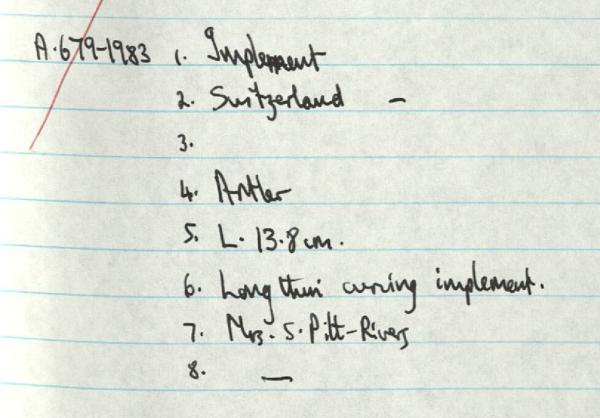 A.679-1983 1. Implement
2. Switzerland –
3.
4. Antler
5. L. 13.8 cm.
6. Long thin curving implement.
7. Mrs. S. Pitt-Rivers
8. —